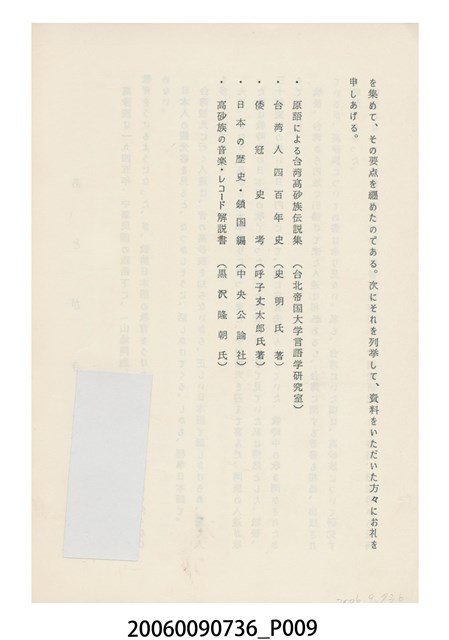 を集めて、その要点を纒めたのである。次にそれを列挙して、資料をいただいた方々にお礼を
申しあげる。
・原語による台湾高砂族伝説集（台北帝国大学言語学研究室）
・台湾人四百年史（史明氏著）
・倭冠史考（呼子丈太郎氏著）
・日本の歴史・鎖国編（中央公論社）
・高砂族の音楽・レコード解説書（黒沢隆朝氏）
20060090736_P009